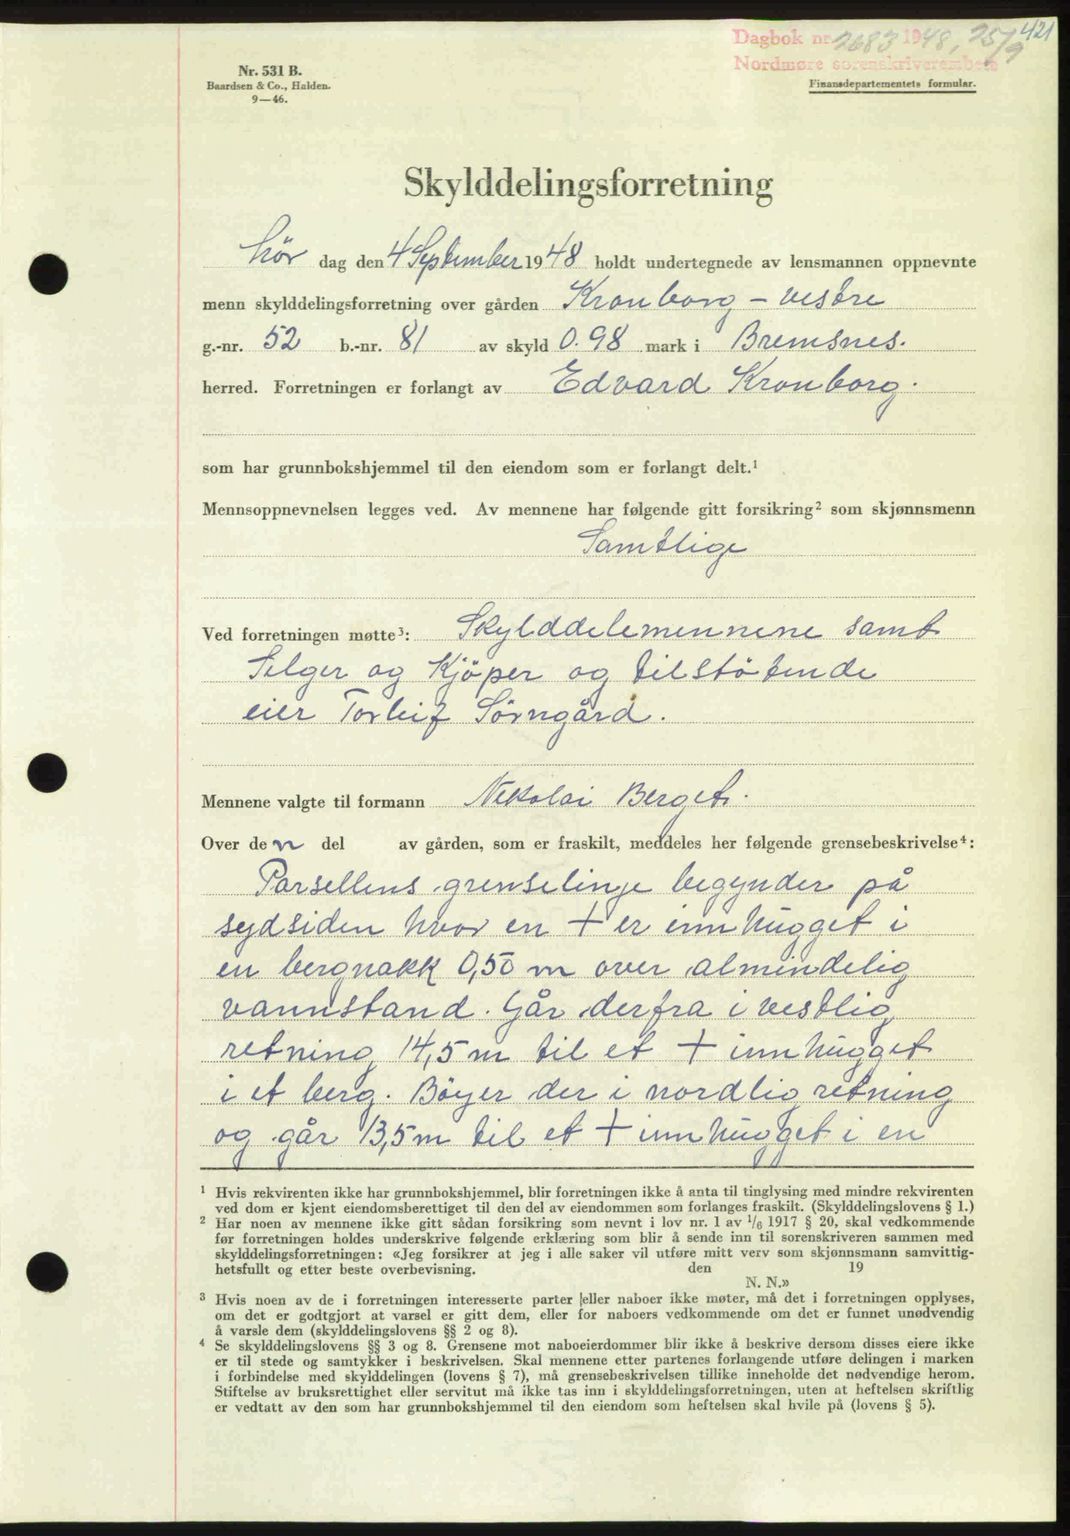 421
Dagbok nr. 2683 1948, 25/9
Nordmøre sorenskriverembete
Nr. 531 B.
Baardsen & Co., Halden.
9—46.
Finansdepartementets formular.
Skylddelingsforretning
Lör dag den 4 September 1948 holdt undertegnede av lensmannen oppnevnte
menn skylddelingsforretning over gården Kronborg – vestre
g.-nr. 52 b.-nr. 81 av skyld 0.98 mark i Bremsnes.
herred. Forretningen er forlangt av Edvard Kronborg.
som har grunnbokshjemmel til den eiendom som er forlangt delt.¹
Mennsoppnevnelsen legges ved. Av mennene har følgende gitt forsikring² som skjønnsmenn
Samtlige
Ved forretningen møtte³: Skylddelemennene samt
Selger og Kjöper og tilstötende
eier Torleif Sörngård.
Mennene valgte til formann Nekolai Berget.
Over den del av gården, som er fraskilt, meddeles her følgende grensebeskrivelse⁴:
Parsellens grenselinje begynder på
sydsiden hvor en + er innhugget i
en bergnakk 0,50 m over almindelig
vannstand. Går derfra i vestlig
retning 14,5 m til et + innhugget
i et berg. Böyer der i nordlig retning
og går 13,5 m til et + innhugget i en
¹ Hvis rekvirenten ikke har grunnbokshjemmel, blir forretningen ikke å anta til tinglysing med mindre rekvirenten
ved dom er kjent eiendomsberettiget til den del av eiendommen som forlanges fraskilt. (Skylddelingslovens § 1.)
² Har noen av mennene ikke gitt sådan forsikring som nevnt i lov nr. 1 av 1/6 1917 § 20, skal vedkommende
før forretningen holdes underskrive følgende erklæring som blir å sende inn til sorenskriveren sammen med
skylddelingsforretningen: «Jeg forsikrer at jeg i alle saker vil utføre mitt verv som skjønnsmann samvittig-
hetsfullt og etter beste overbevisning. den 19
N. N.»
³ Hvis noen av de i forretningen interesserte parter eller naboer ikke møter, må det i forretningen opplyses,
om det er godtgjort at varsel er gitt dem, eller for naboers vedkommende om det er funnet unødvendig
å varsle dem (skylddelingslovens §§ 2 og 8).
⁴ Se skylddelingslovens §§ 3 og 8. Grensene mot naboeierdommer blir ikke å beskrive dersom disses eiere ikke
er til stede og samtykker i beskrivelsen. Skal mennene etter partenes forlangende utføre delingen i marken
i forbindelse med skylddelingen (lovens § 7), må grensebeskrivelsen tillike inneholde det nødvendige herom.
Stiftelse av bruksrettighet eller servitut må ikke tas inn i skylddelingsforretningen, uten at heftelsen skriftlig
er vedtatt av den som har grunnbokshjemmel til den eiendom som heftelsen skal hvile på (lovens § 5).